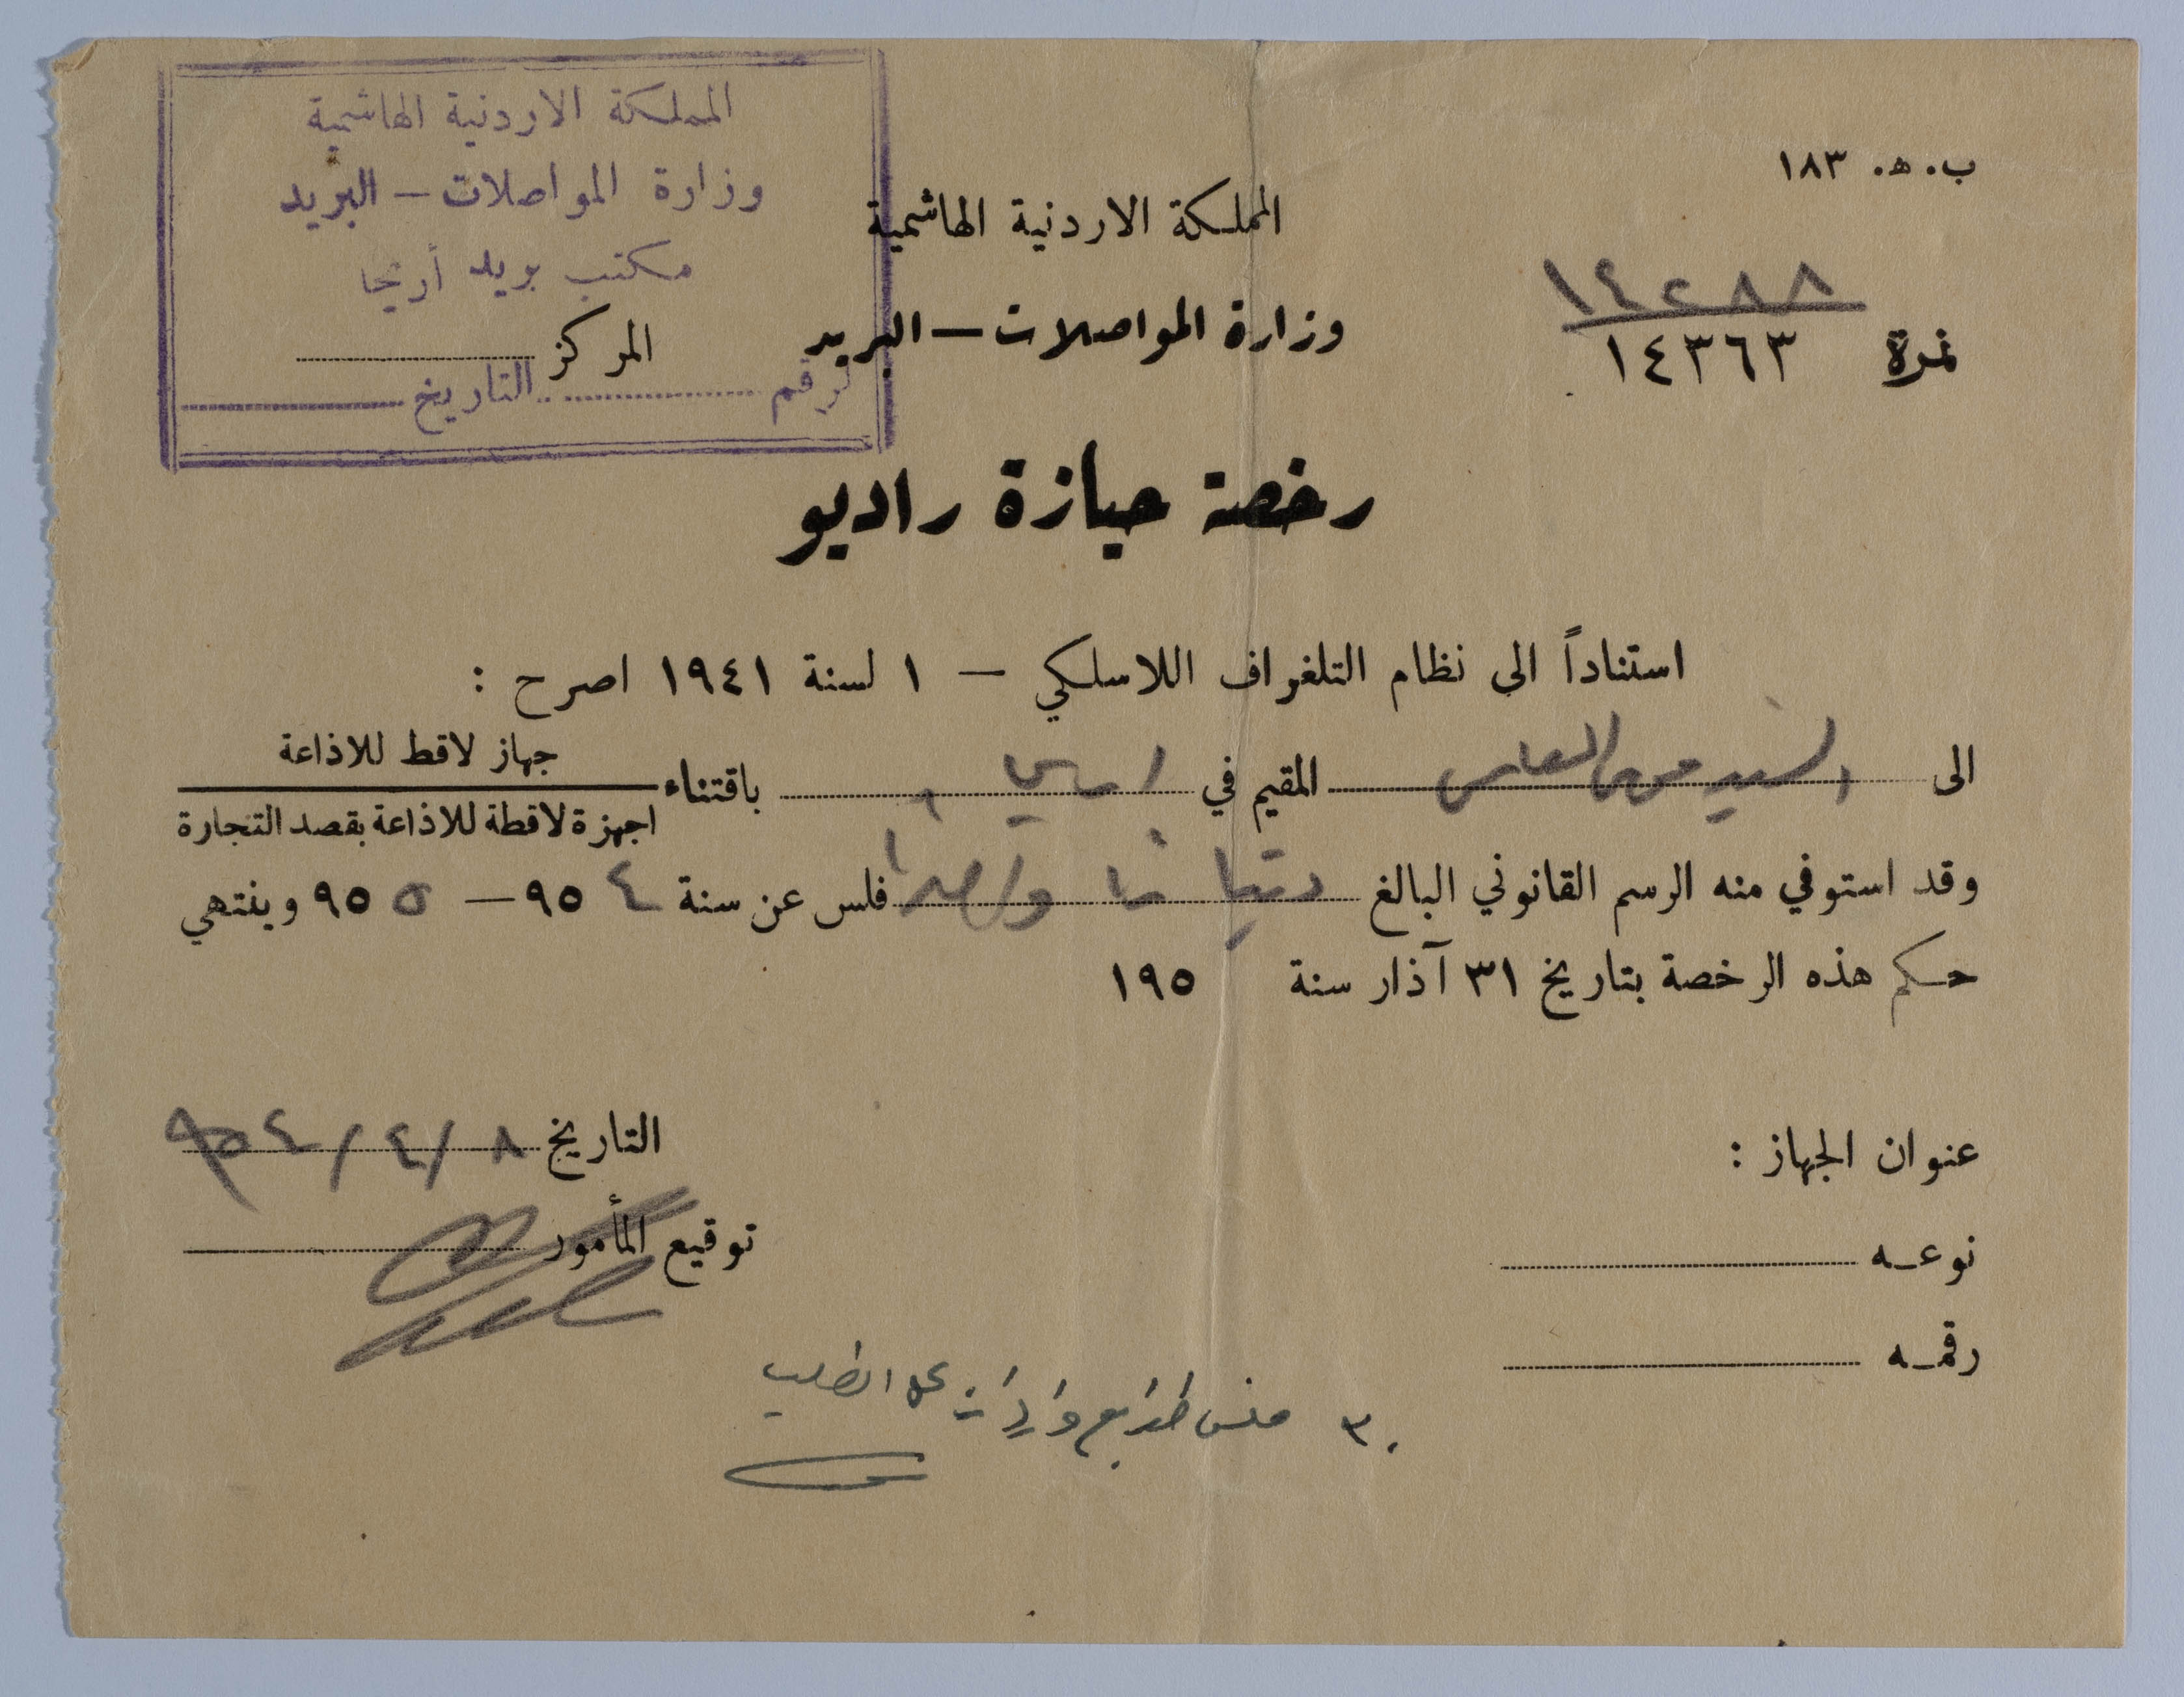 المملكة الاردنية الهاشمية
وزارة المواصلات – البريد
مكتب بريد أريحا
الرقم ........ التاريخ ........
ب. ه. ١٨٣
المملكة الاردنية الهاشمية
وزارة المواصلات – البريد
١٤٢٨٨
نمرة ١٤٣٦٣
المركز ........
رخصة حيازة راديو
استناداً الى نظام التلغراف اللاسلكي – ١ لسنة ١٩٤١ اصرح :
الى السيد موسى العلمي المقيم في باقتناء جهاز لاقط للاذاعة
اجهزة لاقطة للاذاعة بقصد التجارة
وقد استوفي منه الرسم القانوني البالغ فلس عن سنة ٩٥٤ – ٩٥٥ وينتهي
حكم هذه الرخصة بتاريخ ٣١ آذار سنة ١٩٥
التاريخ ٨/٤/٩٥٤
عنوان الجهاز :
توقيع المأمور
نوعه ........
رقمه ........
٣٠ فلس طوابع واردات على الطلب